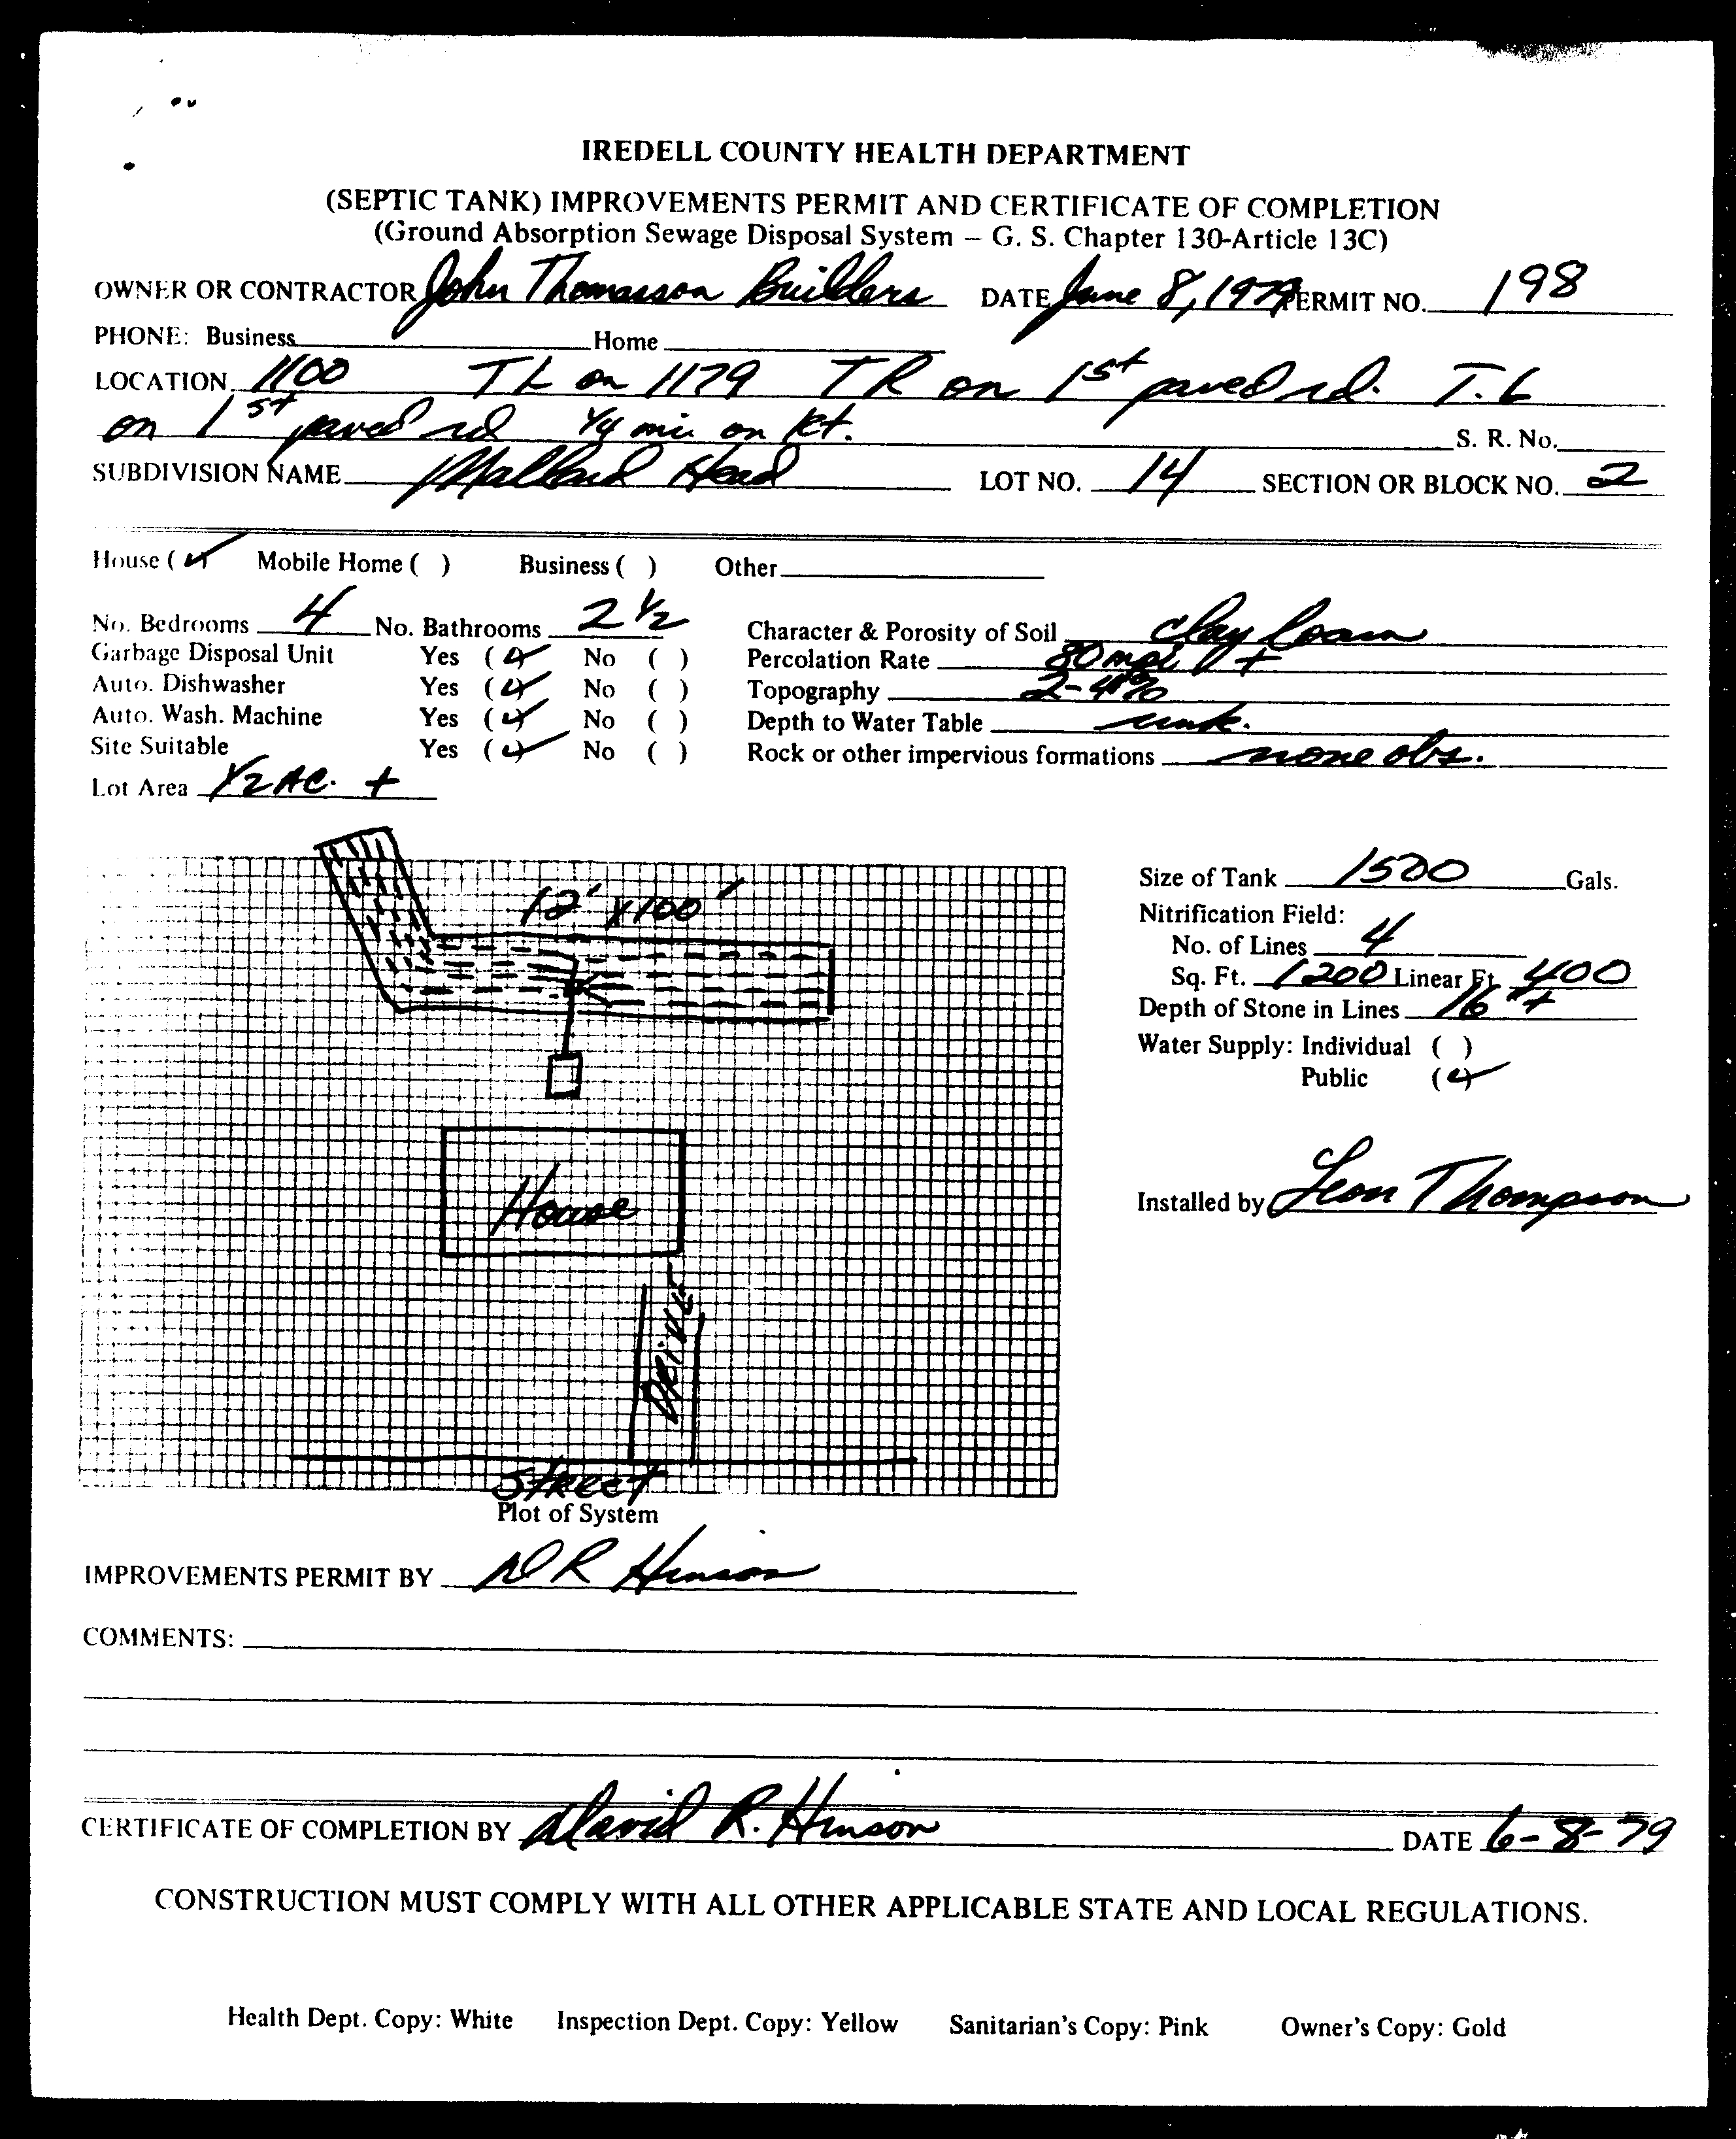 IREDELL COUNTY HEALTH DEPARTMENT
(SEPTIC TANK) IMPROVEMENTS PERMIT AND CERTIFICATE OF COMPLETION
(Ground Absorption Sewage Disposal System – G. S. Chapter 130-Article 13C)
OWNER OR CONTRACTOR John Thomasson Builders DATE June 8, 1979 PERMIT NO. 198
PHONE: Business Home
LOCATION 1100 TL on 1179 TR on 1st paved rd. T.L
on 1st paved rd 1/4 mi on Rt. S. R. No.
SUBDIVISION NAME Mallard Head LOT NO. 14 SECTION OR BLOCK NO. 2
House (✓) Mobile Home ( ) Business ( ) Other
No. Bedrooms 4 No. Bathrooms 2 1/2 Character & Porosity of Soil clay loam
Garbage Disposal Unit Yes (✓) No ( ) Percolation Rate 80 mpi +
Auto. Dishwasher Yes (✓) No ( ) Topography 2-4%
Auto. Wash. Machine Yes (✓) No ( ) Depth to Water Table unk.
Site Suitable Yes (✓) No ( ) Rock or other impervious formations none obs.
Lot Area 1/2 AC. +
12' x 100'
Size of Tank 1500 Gals.
Nitrification Field:
No. of Lines 4
Sq. Ft. 1200 Linear Ft. 400
Depth of Stone in Lines 16" +
Water Supply: Individual ( )
Public (✓)
House
Installed by Leon Thompson
DRIVE
STREET
Plot of System
IMPROVEMENTS PERMIT BY DR Hinson
COMMENTS:
CERTIFICATE OF COMPLETION BY David R. Hinson DATE 6-8-79
CONSTRUCTION MUST COMPLY WITH ALL OTHER APPLICABLE STATE AND LOCAL REGULATIONS.
Health Dept. Copy: White Inspection Dept. Copy: Yellow Sanitarian's Copy: Pink Owner's Copy: Gold